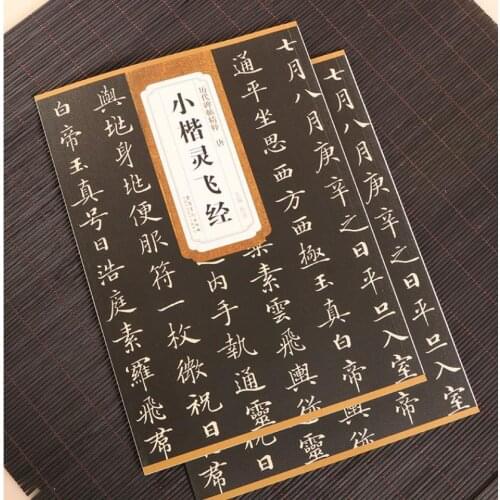 七月八月庚辛之日平旦入室
通平坐思西方西極玉真白帝
素雲飛輿從靈
之內手執通靈
輿地身地便服符一枚微祝曰
白帝玉真号曰浩庭素羅飛帬
历代碑帖精粹 唐
小楷灵飞经
七月八月庚辛之日平旦入室